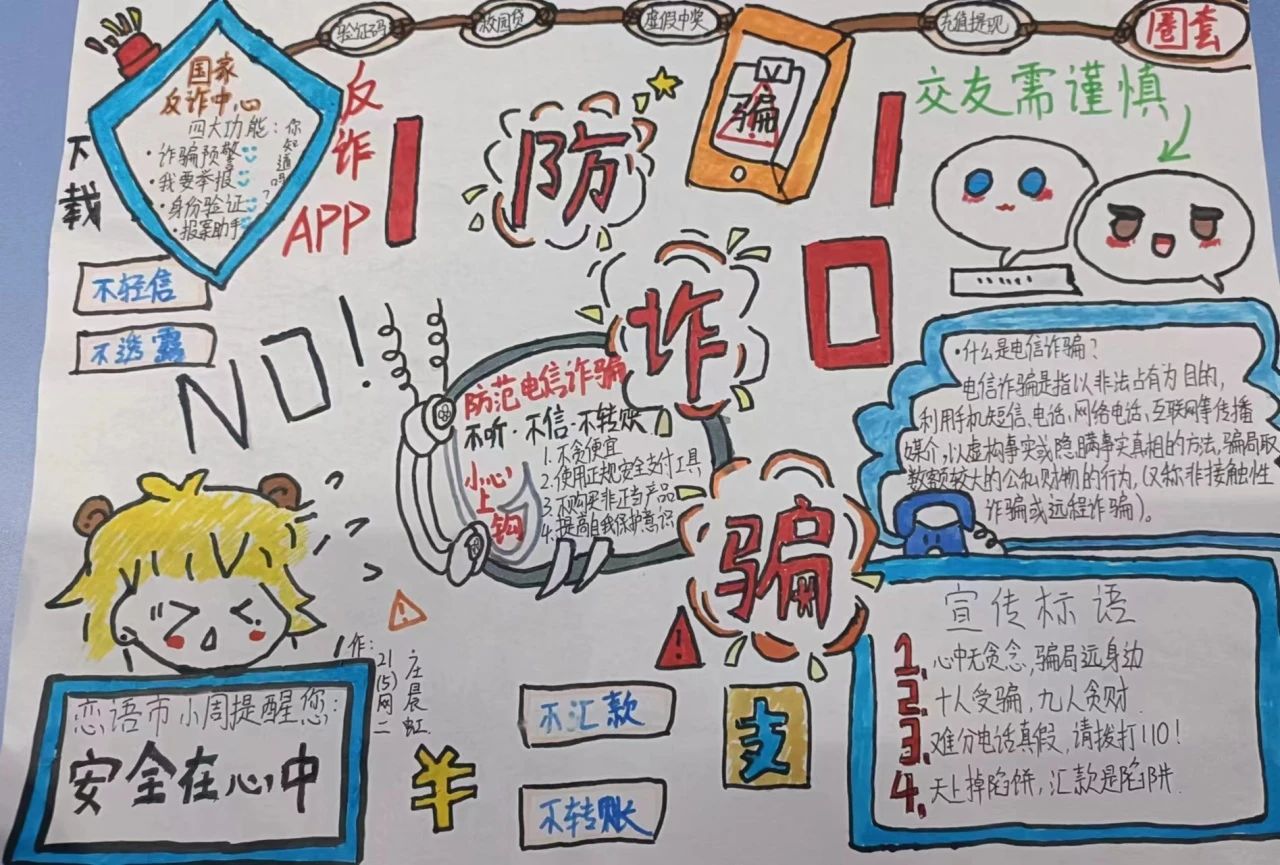 验证码
校园贷
虚假中奖
充值提现
圈套
国家
反诈中心
四大功能:
你知道吗?
·诈骗预警
·我要举报
·身份验证
·报案助手
下载
反诈
APP
防
诈
骗
骗
交友需谨慎
......
不轻信
不透露
NO!
防范电信诈骗
不听·不信·不转账
小心上钩
1.不贪便宜
2.使用正规安全支付工具
3.不购买非正当产品
4.提高自我保护意识
·什么是电信诈骗?
电信诈骗是指以非法占有为目的,
利用手机短信、电话、网络电话、互联网等传播
媒介,以虚构事实或隐瞒事实真相的方法,骗局取
数额较大的公私财物的行为,(又称非接触性
诈骗或远程诈骗)。
宣传标语
1.心中无贪念,骗局远身边
2.十人受骗,九人贪财.
3.难分电话真假,请拨打110!
4.天上掉陷饼,汇款是陷阱.
恋语市小周提醒您:
安全在心中
作:
21(5)网二
庄晨虹
!
!
¥
不汇款
不转账
支